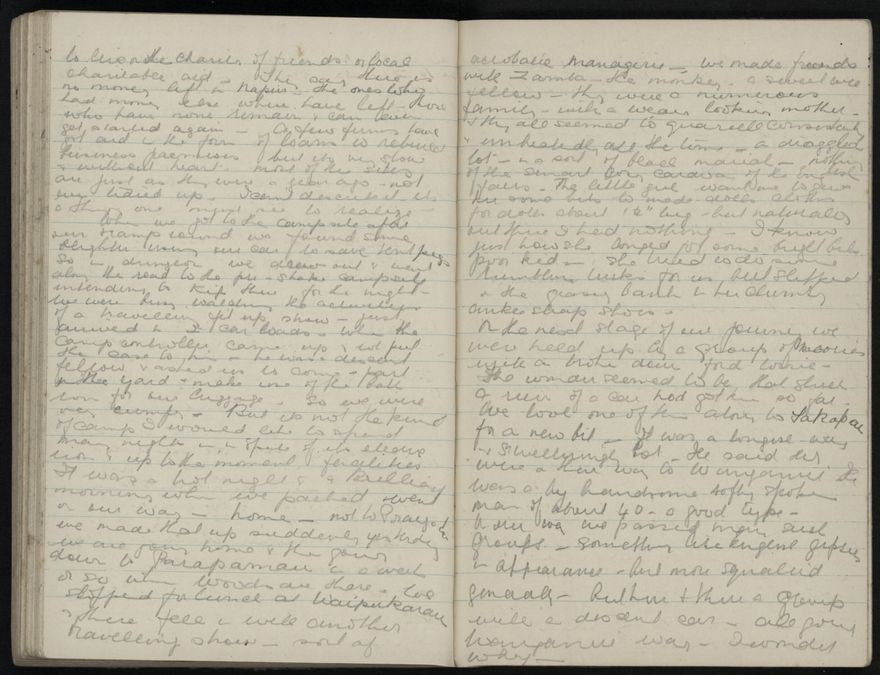 to live on the charity of friends or local
charitable aid - They say there is
no money left in Napier. The ones who
had money else where have left - those
who have none remain & can never
get started again - A few firms have
got aid in the form of loans to rebuild
business premises but its very slow
& without heart. Most of the sites
are just as they were a year ago - not
even tidied up. I cant describe it its
a thing one must see to realize -
When we got to the camp site after
our tramp round we found some
blighter using our car to save tent pegs
So in dudgeon we drew out & went
along the road to the pre-shake camp site
intending to kip there for the night -
We were busy watching the activities
of a travelling pet up show - just
arrived in 2 car loads - when the
camp controller came up & we put
the case to him - he was a decent
fellow & asked us to come & park
in the yard & make use of the bath
room for our luggage - So we were
very comfy - But its not the kind
of camp I would like to spend
many nights in in spite of its electric
iron & up to the moment facilities
It was a hot night & a brilliant
morning when we packed & went
on our way - home - not to
we made that up suddenly yesterday
we are going home & then going
down to Paraparaumu in a week
or so when Woods are there - We
stopped for lunch at Waipukarau
& there fell in with another
travelling show - sort of
acrobatic managerie - we made friends
with Zamba - the monkey - a sweet wee
fellow - they were a numerous
family - with a weary looking mother -
& they all seemed to quarrel consistently
& unheatedly all the time - a draggled
lot - in a sort of black marial - nothing
of the smart cosy caravan of the english
fairs - The little girl wanted me to give
her some bits to made dolls clothes
for dolls about 1½" big - but naturally
out there I had nothing - I know
just how she longed for some bright bits
poor kid - She tried to do some
tumbling tricks for us but slipped
in the greasy bank in her clumsy
ankle strap shoes -
On the next stage of our journey we
were held up by a group of Maories
with a broke down ford
The wonder seemed to be that such
a ruin of a car had got them so far.
We took one of them along to Takapau
for a new bit - It was a longish way
& swelteringly hot - He said they
were on their way to Wanganui He
was a big handsome softly spoken
man of about 40 - a good type -
On our way we passed many such
groups - something like english gipsies
in appearance - but more squalid
generally - but here & there a group
with a decent car - all going
Wanganui way - I wonder
why -